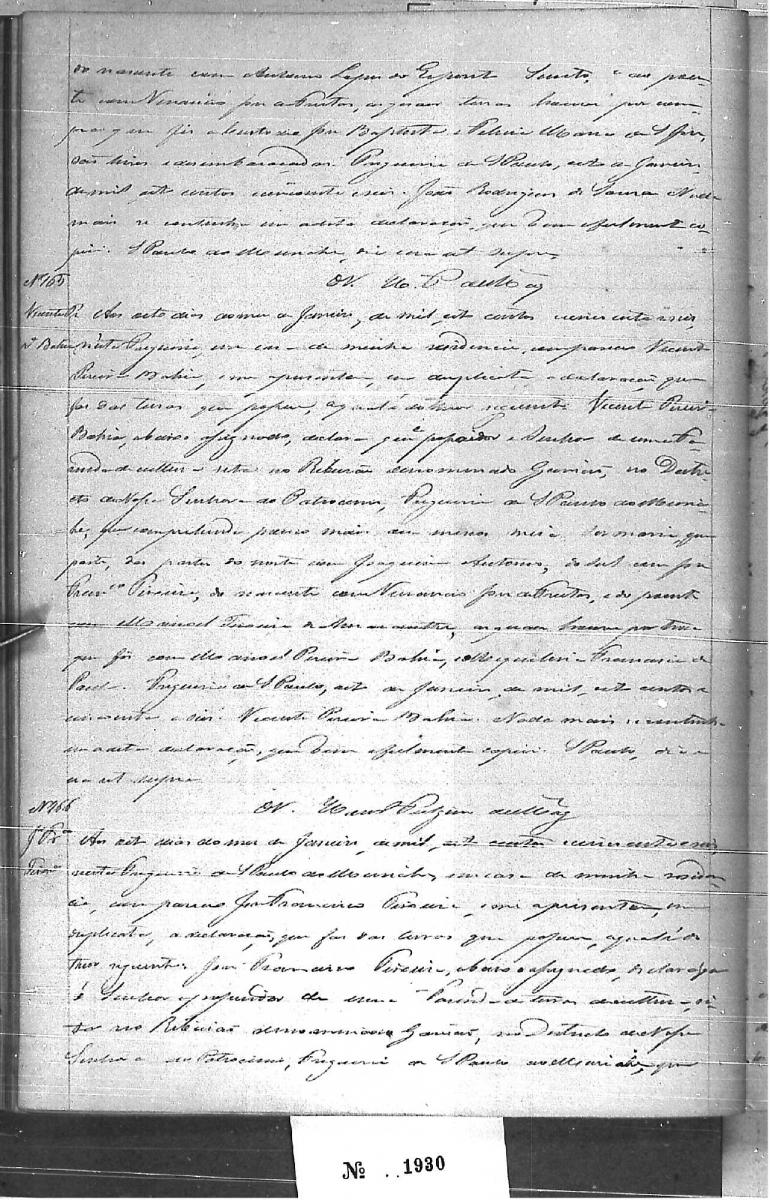 do nascente com Antonio Lopes do Espirit Santo, e ao poen-
te com Venancio José de Freitas, as quaes terras houve por com-
pra que fiz a Custodio José Baptista e Felicia Maria de S José,
são livres e desembaraçadas. Freguezia de S Paulo, oito de Janeiro
de mil oit centos cincoenta e seis. João Rodrigues de Souza Nada
mais se continha em a dita declaração, que bem e fielmente co-
piei. S Paulo do Muriahe, dia era ut supra
Nº 165
Vicente Pr.ª Bahia
Aos oito dias do mes de Janeiro, de mil, oit centos cincoenta e seis,
nesta Freguezia, em casa de minha residencia, compareceo Vicente
Pereira Bahia, e me apresentou, em duplicata, a declaração que
faz das terras que possue, a qual é do theor seguinte Vicente Pereira
Bahia, abaixo assignado, declara que é possuidor e Senhor de uma Fa-
zenda de cultura sita no Ribeirão denominado Gavião, no Destri-
cto de Nossa Senhora do Patrocinio, Freguezia de S Paulo do Muria-
he, que comprehende pouco mais ou menos meia Sesmaria, que
parte, das partes do norte com Joaquim Antonio, do sul com José
Fran.co Pereira, do nascente com Venancio José de Freitas, e do poente
com Manoel Teixeira de, as quaes houve por troca
que fiz com Manoel Pereira Bahia, e Francisco de
Paula. Freguezia de S Paulo, oito de Janeiro, de mil, oito centos e
cincoenta e seis. Vicente Pereira Bahia. Nada mais se continha
em a dita declaração, que bem e fielmente copiei. S Paulo, dia e
era ut supra
Nº 166
J.e Fr.co
Aos oito dias do mes de Janeiro, de mil, oit centos cincoenta e seis,
nesta Freguezia de S Paulo do Muriahe, em casa de minha residen-
cia, compareceo José Francisco Pereira, e me apresentou, em
duplicata, a declaração, que faz das terras que possue, a qual é do
theor seguinte José Francisco Pereira, abaixo assignado, declara que
é Senhor e possuidor de uma Fazenda de terras de cultura, si-
ta no Ribeirão denominado Gavião, no Destricto de Nossa
Senhora do Patrocinio, Freguezia de S Paulo do Muriahe, que
Nº 1930